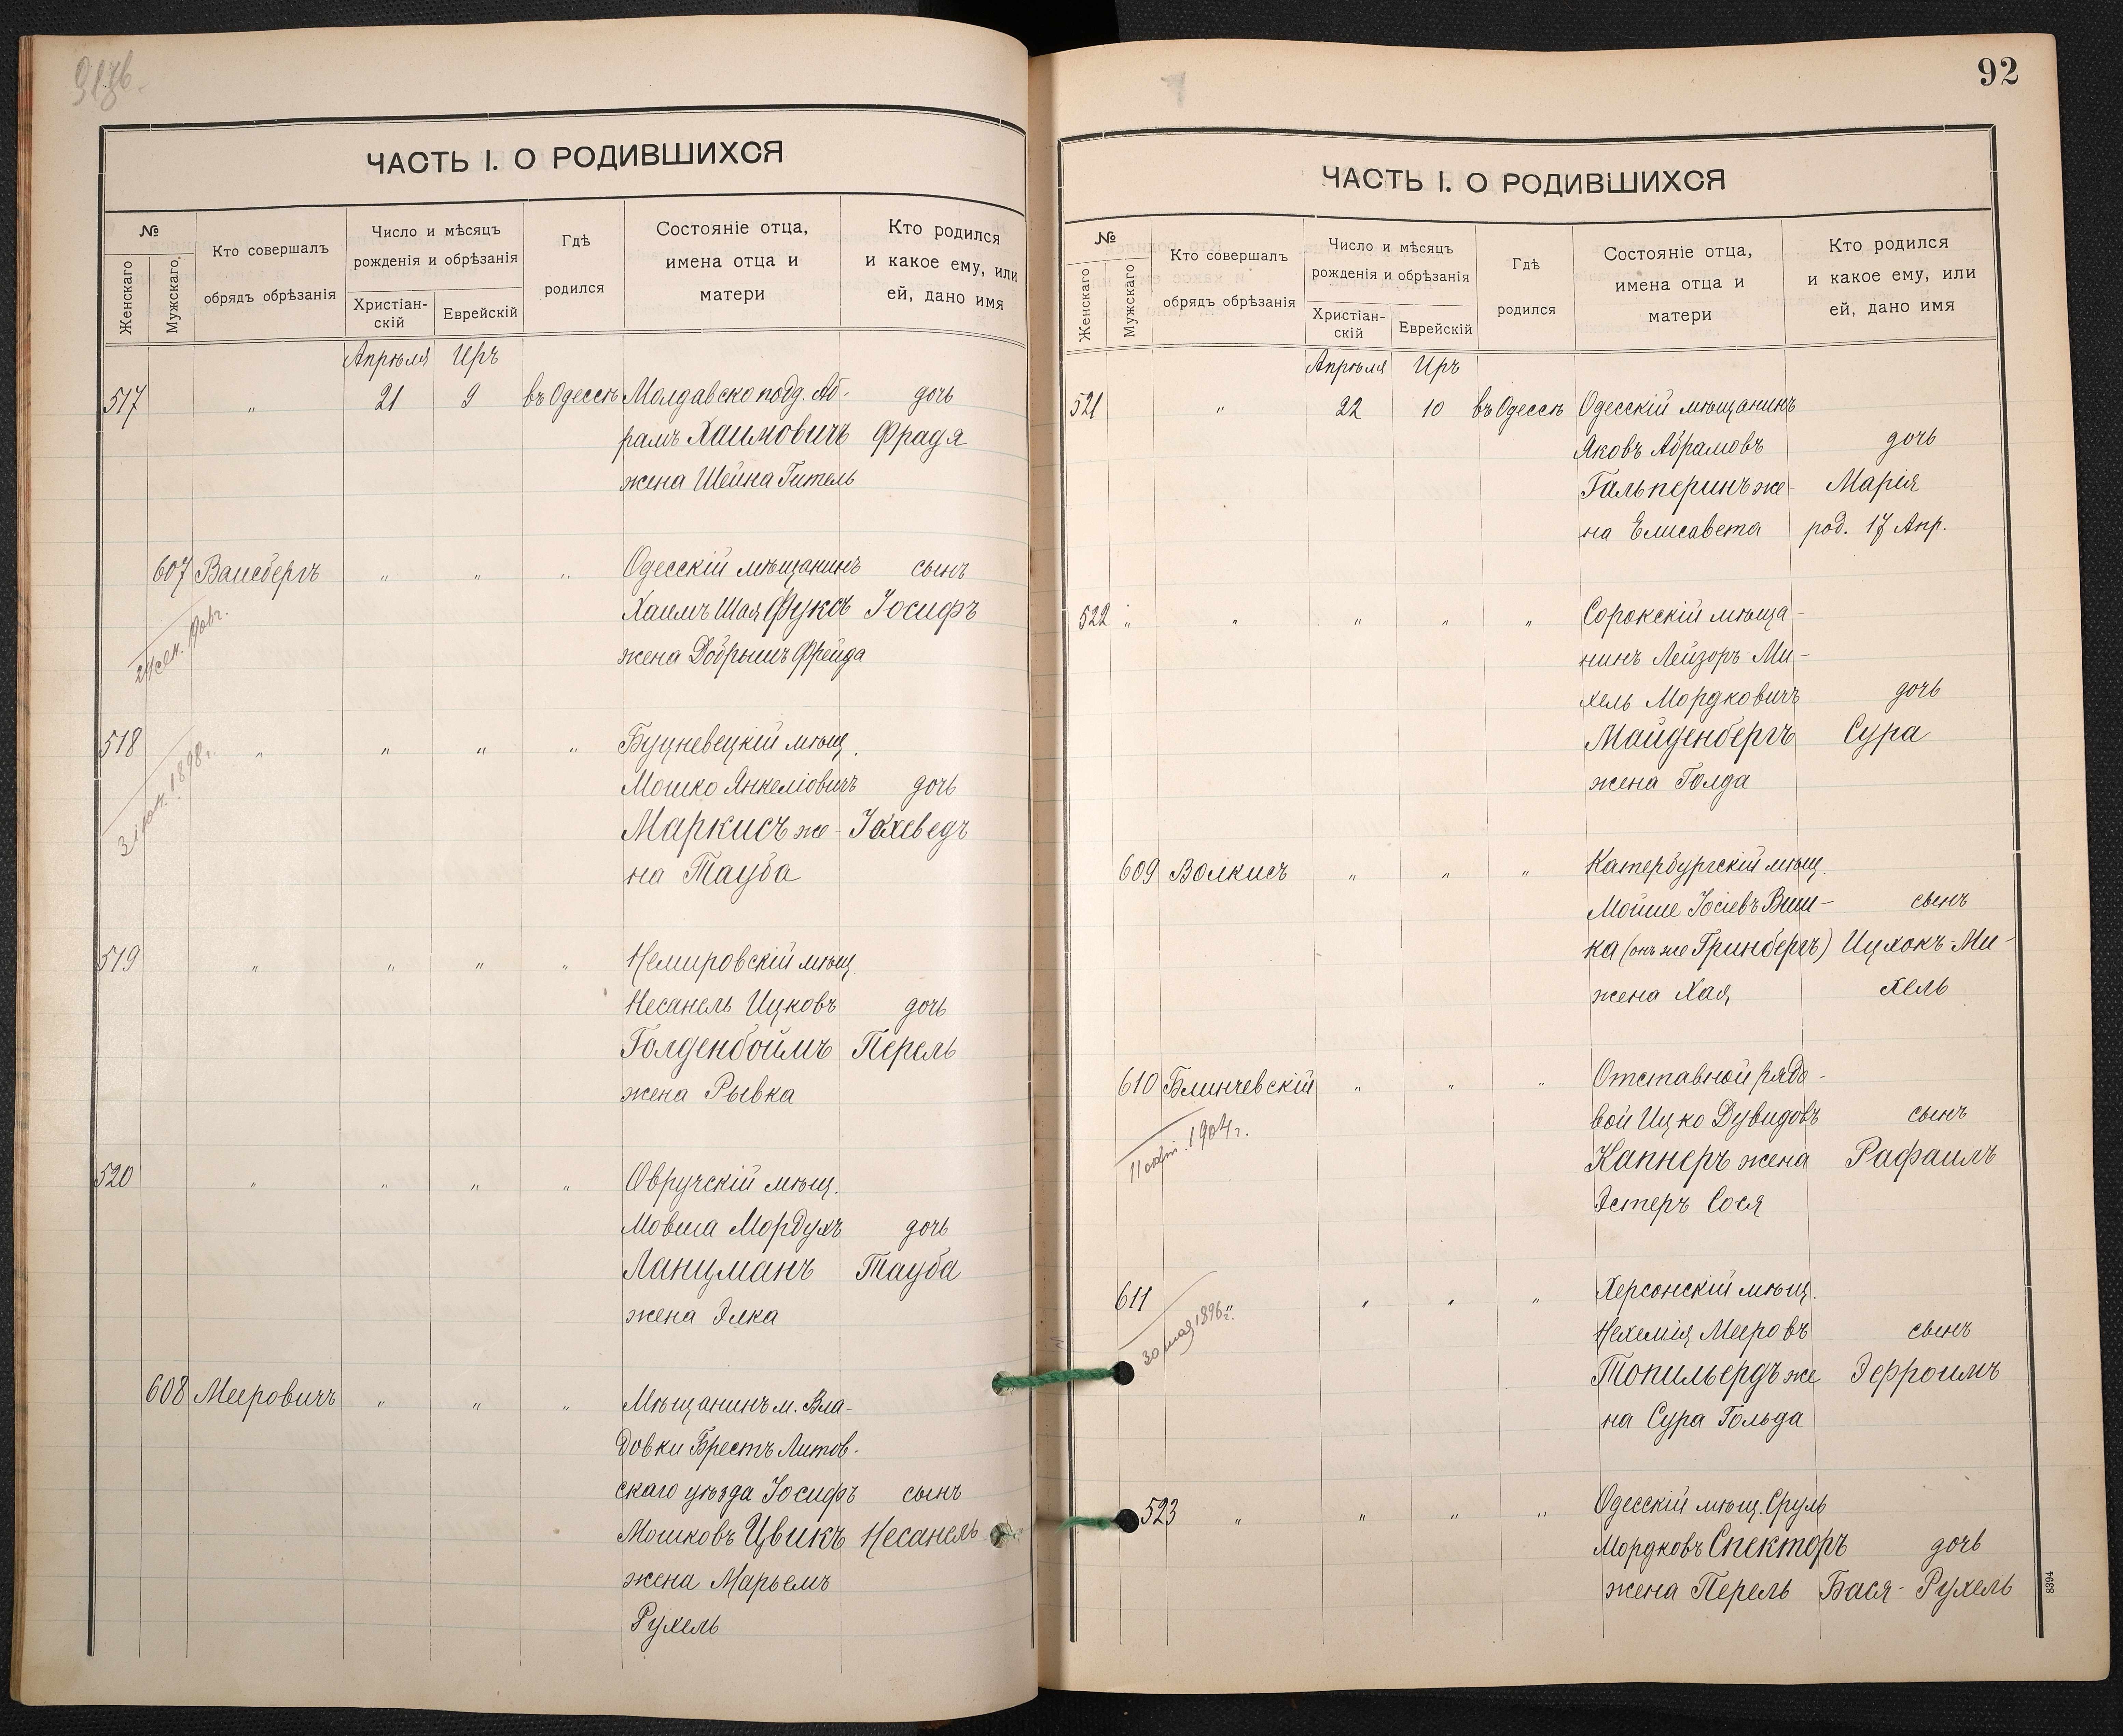 ЧАСТЬ I. О РОДИВШИХСЯ
№
Женскаго
Мужскаго.
Кто совершалъ
обрядъ обрѣзанія
Число и мѣсяцъ
рожденія и обрѣзанія
Христіан-
скій
Еврейскій
Гдѣ
родился
Состояніе отца,
имена отца и
матери
Кто родился
и какое ему, или
ей, дано имя
Апрѣля Иръ
517 " 21 9 въ Одессѣ Молдавско подд. Аб- дочь
рамъ Хаимовичъ Фрадя
жена Шейна Гитель
607 Вайсбергъ " " " Одесскій мѣщанинъ сынъ
Хаимъ Шая Фуксъ Іосифъ
жена Добрышъ Фрейда
518 " " " " Буцневецкій мѣщ.
31 1898 г.
Мошко Янкеліовичъ дочь
Маркисъ же- Іохеведъ
на Тауба
519 " " " " Немировскій мѣщ.
Несанель Ицковъ дочь
Голденбоймъ Перель
жена Рывка
520 " " " " Овручскій мѣщ.
Мовша Мордухъ дочь
Ланцманъ Тауба
жена Элка
608 Мееровичъ " " " Мѣщанинъ м. Вла-
довки Брестъ Литов-
скаго уѣзда Іосифъ сынъ
Мошковъ Цвикъ Несанель
жена Марьемъ
Рухель
92
ЧАСТЬ I. О РОДИВШИХСЯ
№
Женскаго
Мужскаго
Кто совершалъ
обрядъ обрѣзанія
Число и мѣсяцъ
рожденія и обрѣзанія
Христіан-
скій
Еврейскій
Гдѣ
родился
Состояніе отца,
имена отца и
матери
Кто родился
и какое ему, или
ей, дано имя
Апрѣля Иръ
521 " 22 10 въ Одессѣ Одесскій мѣщанинъ
Яковъ Абрамовъ дочь
Гальперинъ же- Марія
на Елисавета род. 17 Апр.
522 " " " " " Сорокскій мѣща-
нинъ Лейзоръ-Ми-
хель Мордковичъ дочь
Майденбергъ Сура
жена Голда
609 Волкисъ " " " Катербургскій мѣщ.
Мойше Іосіевъ Виш- сынъ
ка (онъ же Гринбергъ) Ицхокъ Ми-
жена Хая, хель
610 Блинчевскій " " " Отставной рядо-
11 окт. 1904 г.
вой Ицко Дувидовъ сынъ
Капнеръ жена Рафаилъ
Эстеръ Сося
611 " " " Херсонскій мѣщ.
30 мая 1896 г.
Нехемія Мееровъ сынъ
Топильбердъ же Эефроимъ
на Сура Гольда
523 " " " " Одесскій мѣщ. Сруль
Мордковъ Спекторъ дочь
жена Перель Бася-Рухель
8394